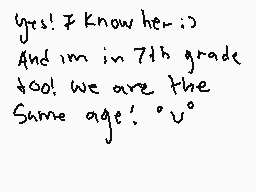 yes! I know her :)
And im in 7th grade
too! we are the
Same age! °v°